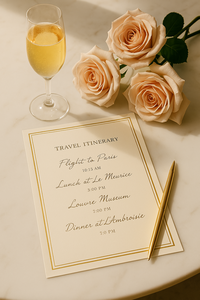 TRAVEL ITINERARY
Flight to Paris
10:15 AM
Lunch at Le Meurice
2:00 PM
Louvre Museum
5:00 PM
Dinner at L'Ambroisie